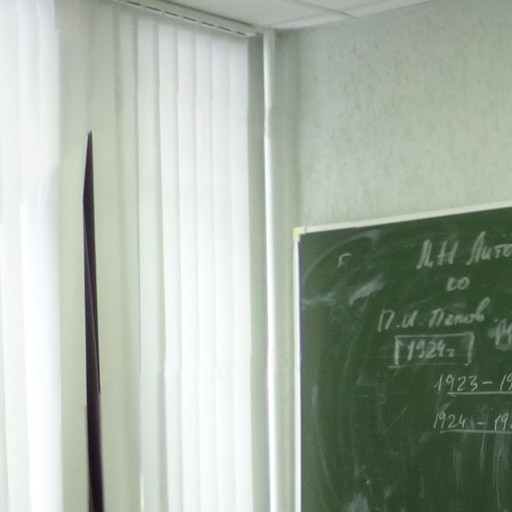 г
М.Н Лито
ко
П.И. Попов
1924г
1923-19
1924-19